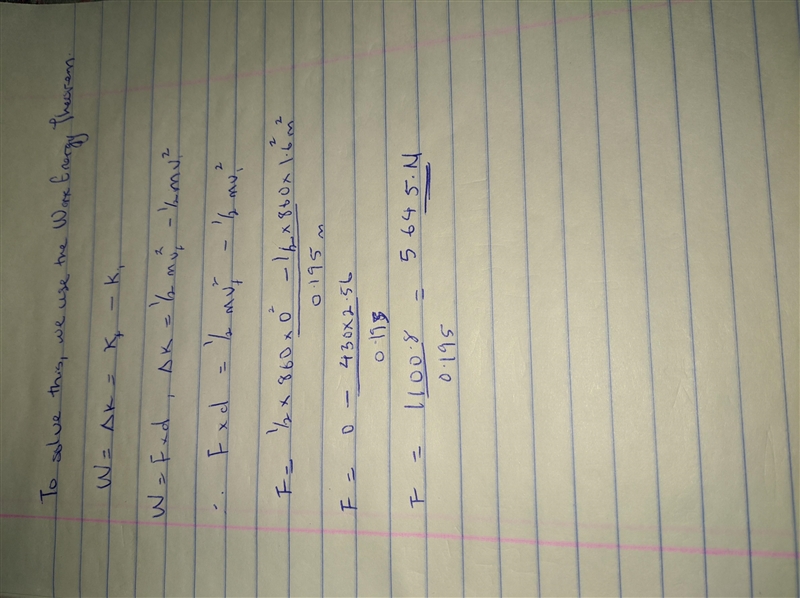 To solve this, we use the Work Energy Theorem.
W = Δk = K_f - K_i
W = F x d , ΔK = ½ mv_f² - ½ mv_i²
∴ F x d = ½ mv_f² - ½ mv_i²
F = ½ x 860 x 0² - ½ x 860 x 1.6² m²
0.195 m
F = 0 - 430 x 2.56
0.195
F = 1100.8 = 5645.N
0.195